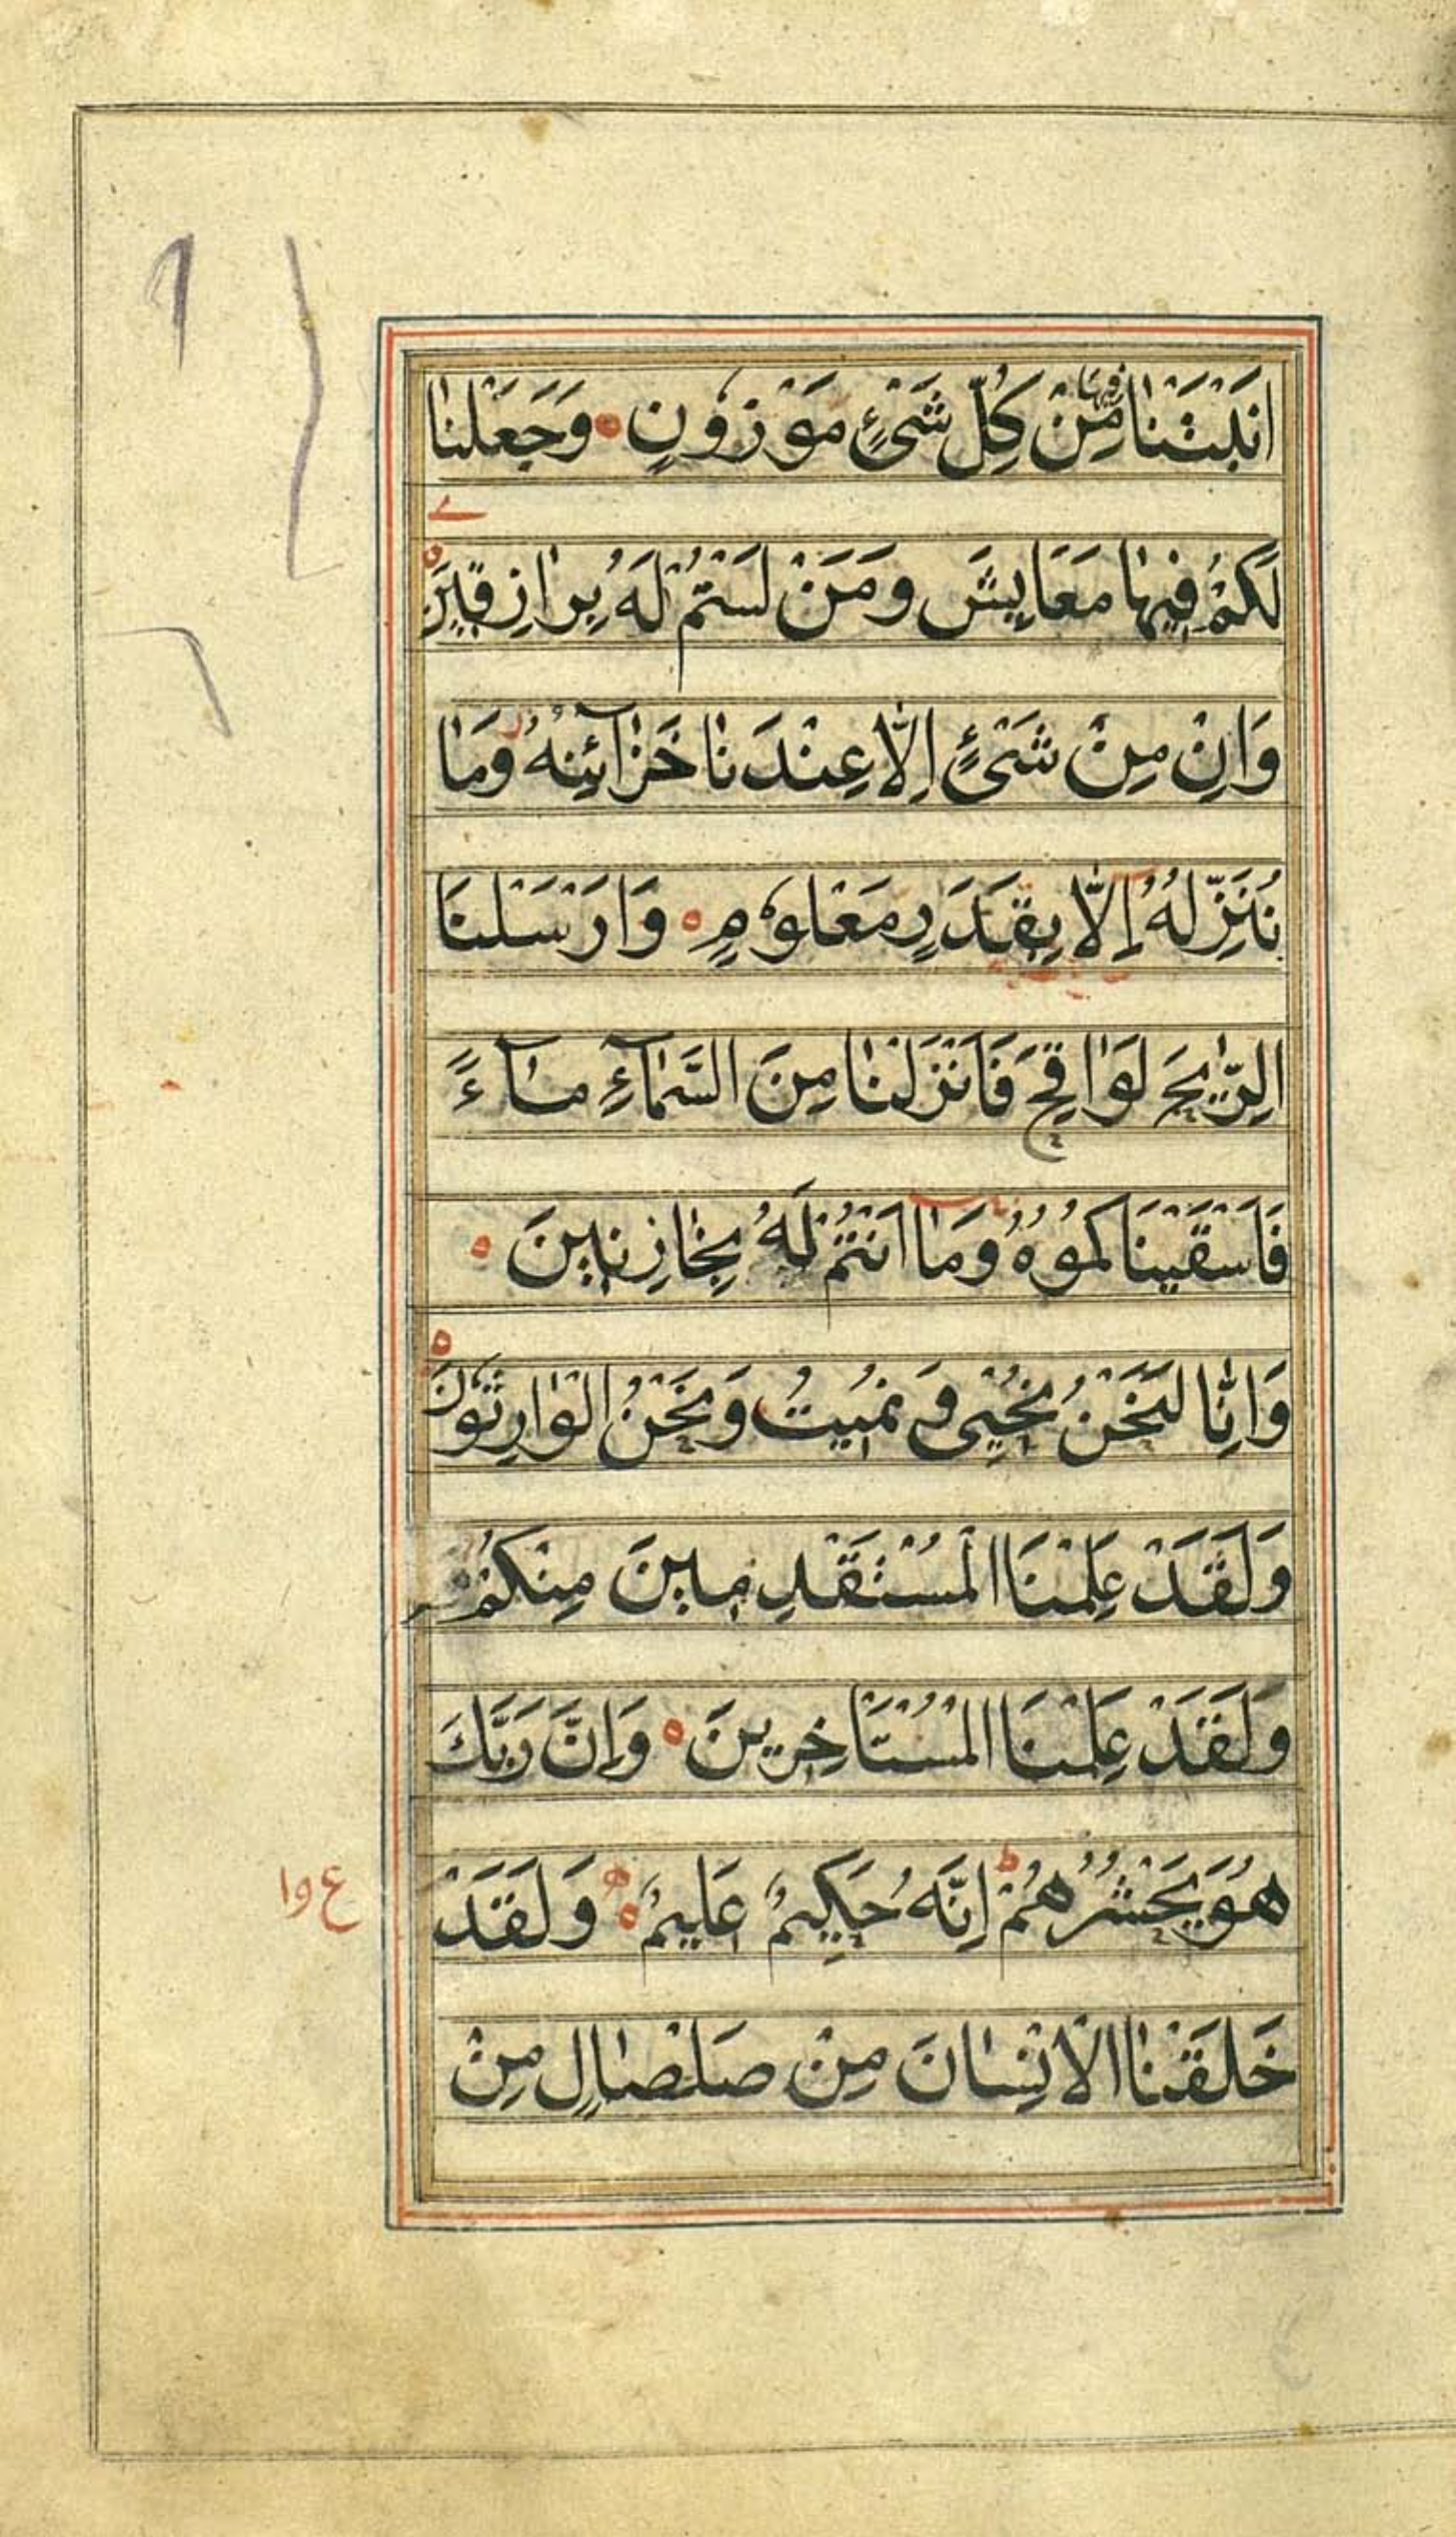 اَنْبَتْنَا فِيهَا مِّنْ كُلِّ شَیْءٍ مَوْزُوْنٍ وَجَعَلْنَا
لَكُمْ فِيهَا مَعَايِشَ وَمَنْ لَسْتُمْ لَهُ بِرَازِقِيْنَ
وَاِنْ مِنْ شَیْءٍ اِلَّا عِنْدَنَا خَزَآئِنُهُ وَمَا
نُنَزِّلُهُ اِلَّا بِقَدَرٍ مَعْلُوْمٍ وَاَرْسَلْنَا
الرِّيٰحَ لَوَاقِحَ فَاَنْزَلْنَا مِنَ السَّمَآءِ مَآءً
فَاَسْقَيْنَا كُمُوْهُ وَمَا اَنْتُمْ لَهُ بِخَازِنِيْنَ
وَاِنَّا لَنَحْنُ نُحْيِی وَ نُمِيْتُ وَنَحْنُ الْوَارِثُوْنَ
وَلَقَدْ عَلِمْنَا الْمُسْتَقْدِمِيْنَ مِنْكُمْ
وَلَقَدْ عَلِمْنَا الْمُسْتَاْخِرِيْنَ وَاِنَّ رَبَّكَ
هُوَ يَحْشُرُهُمْ ط اِنَّهُ حَكِيْمٌ عَلِيْمٌ وَلَقَدْ
خَلَقْنَا الْاِنْسَانَ مِنْ صَلْصَالٍ مِنْ